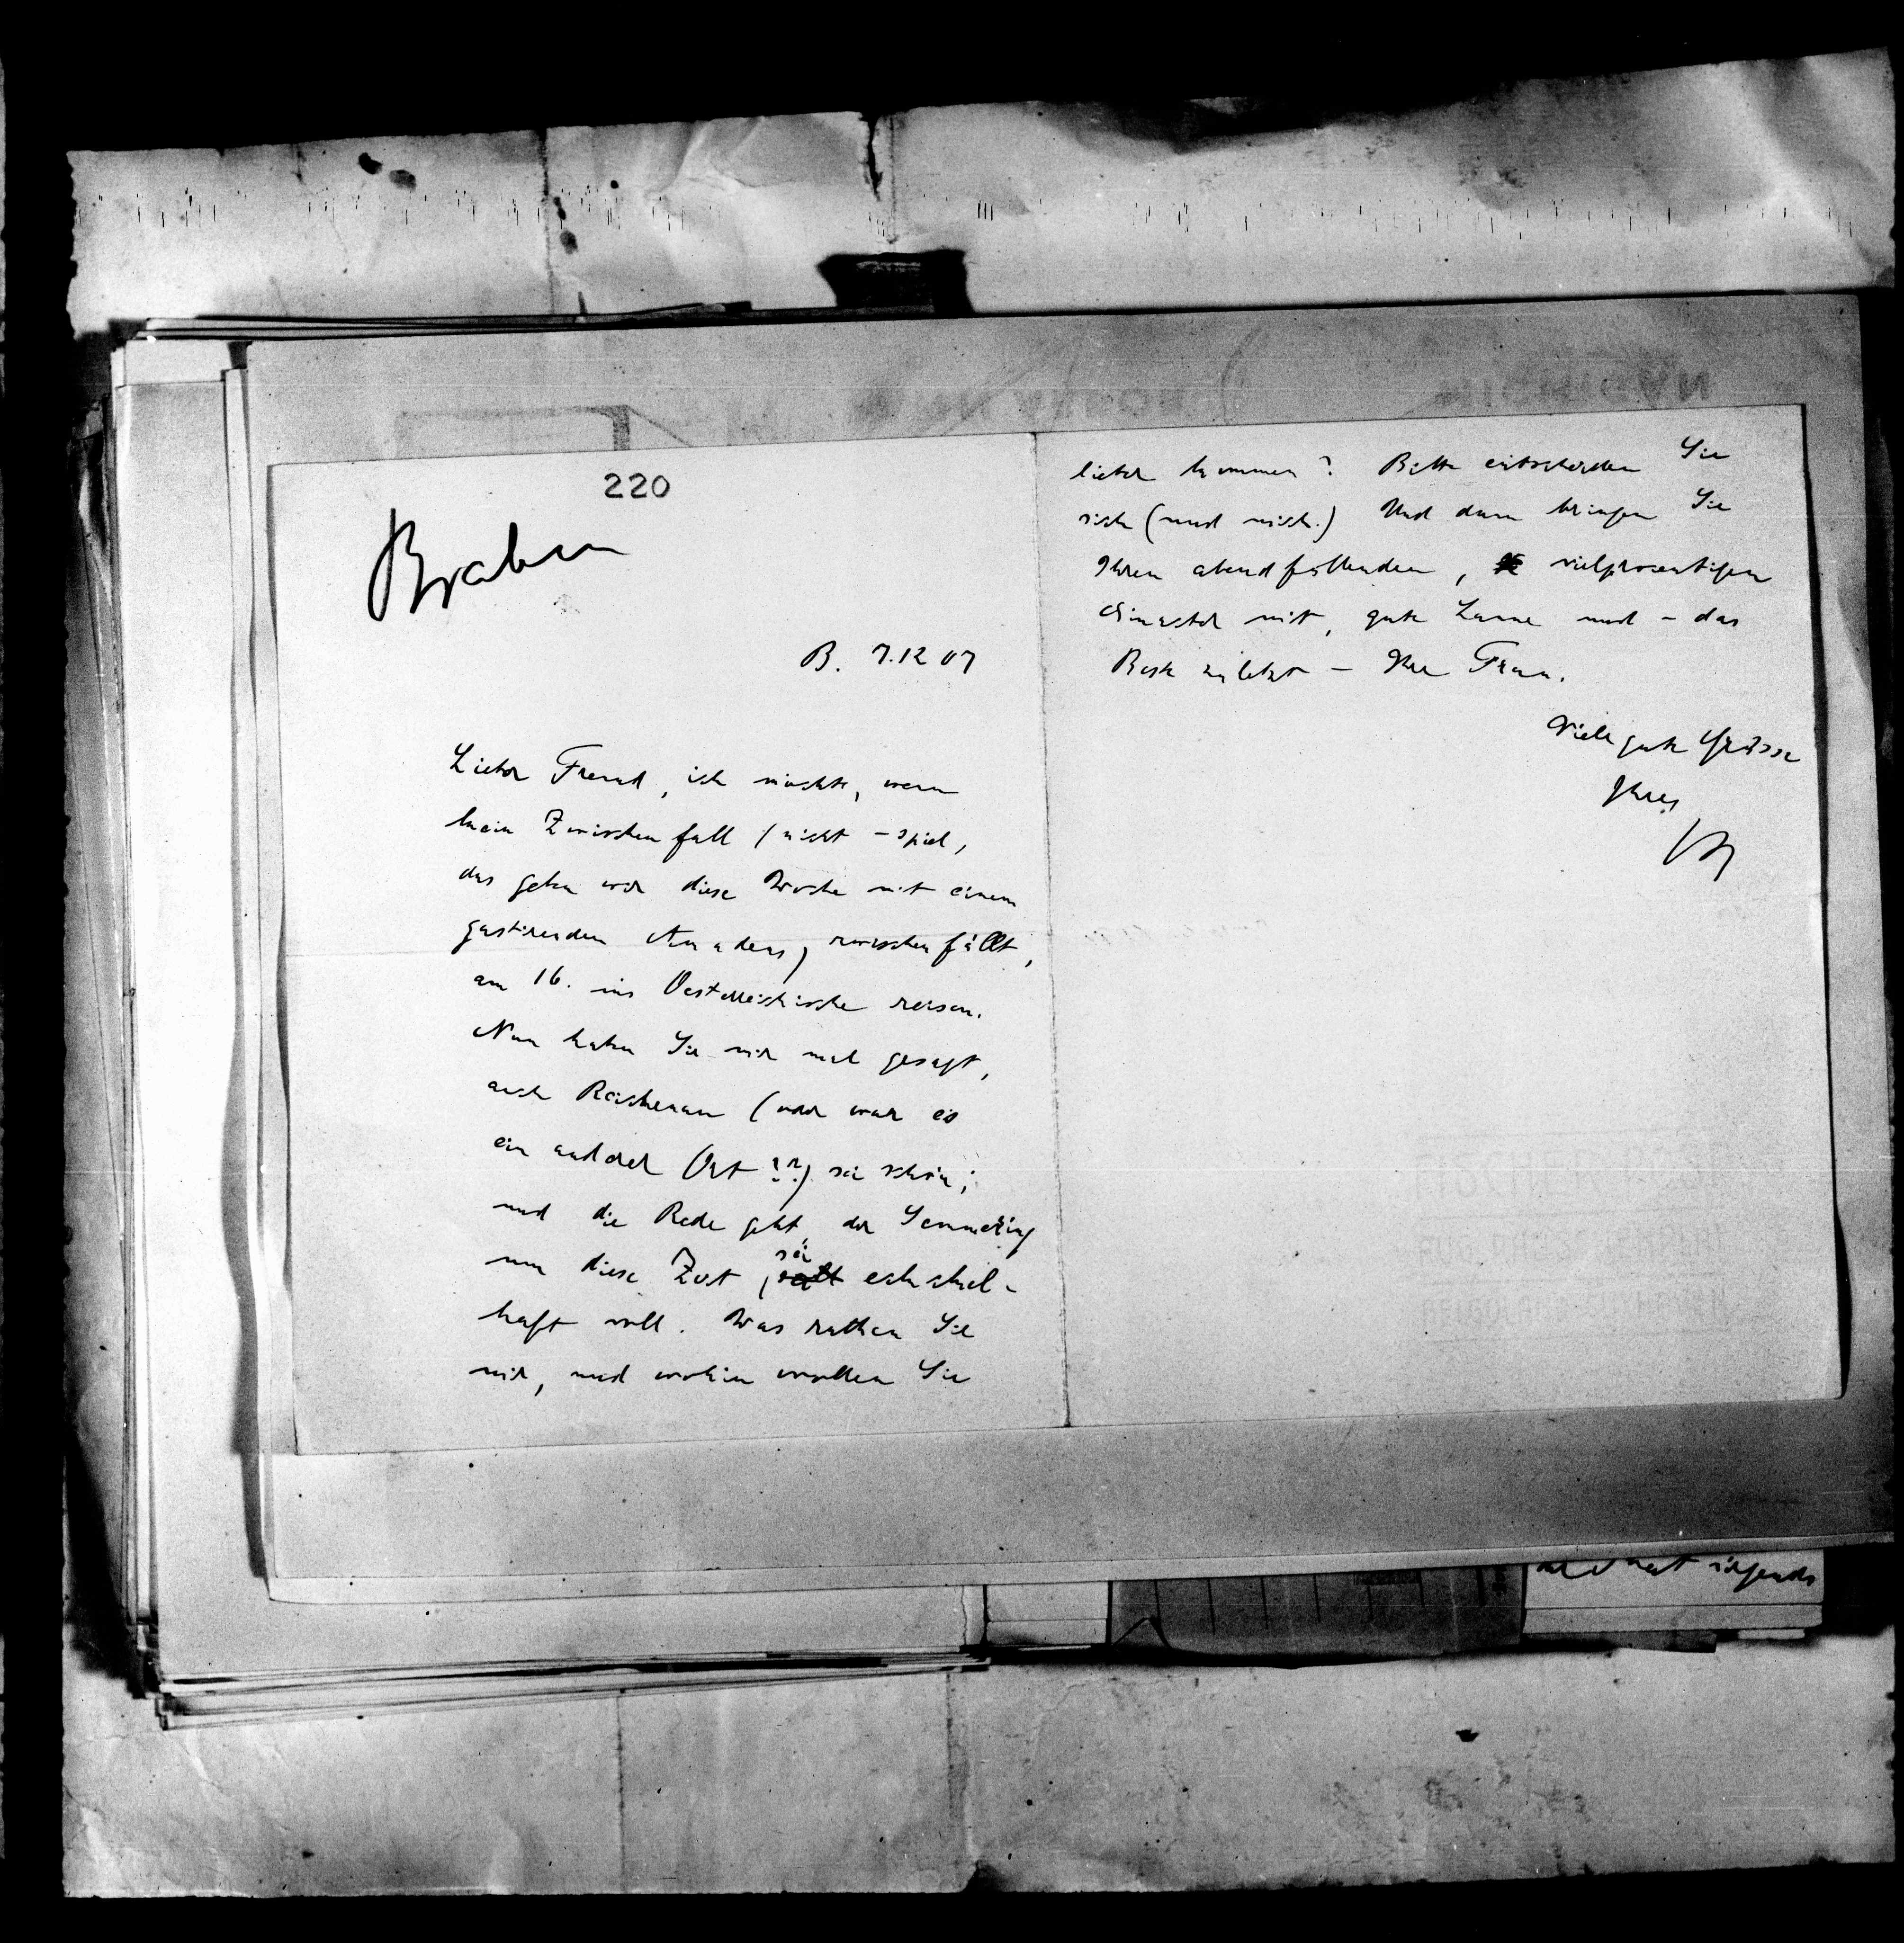 220
Brahm
B. 7.12 07
Lieber Freund, ich möchte, wenn
kein Zwischenfall (nicht -spiel,
das geben wir diese Woche mit einem
gastirenden Anatols) zwischenfällt,
am 16. ins Oesterreichische reisen.
Nun haben Sie mir mal gesagt,
auch Reichenau (oder war es
ein andrer Ort??) sei schön;
und die Rede geht, der Semmering
um diese Zeit sei ekelhaft
haft voll. Was rathen Sie
mir, und wohin wollen Sie
lieber kommen? Bitte entscheiden Sie
sich (und mich.) Und dann bringen Sie
Ihren abendfüllenden, vielprozentigen
Einakter mit, gute Laune und - das
Beste zuletzt - Ihre Frau.
Viele gute Grüsse
Ihres